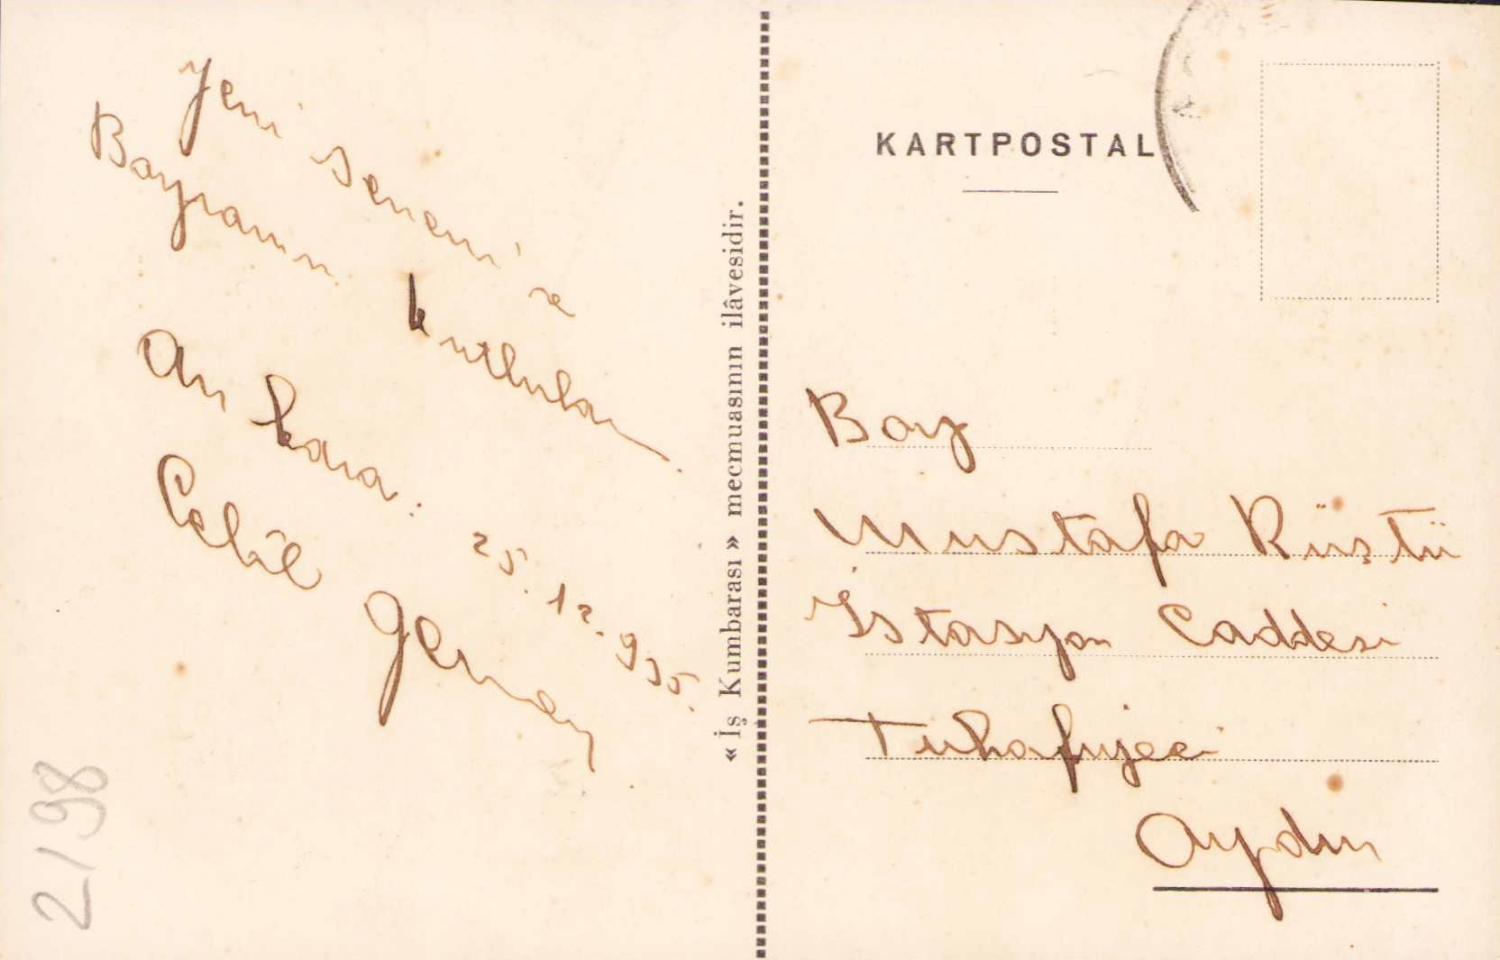 Yeni seneni ve
Bayramını kutlular.
Ankara: 25.12.935.
Celâl
«İş Kumbarası» mecmuasının ilâvesidir.
KARTPOSTAL
Bay
Mustafa Rüştü
İstasyon Caddesi
Tuhafiyeci
Aydın
2198